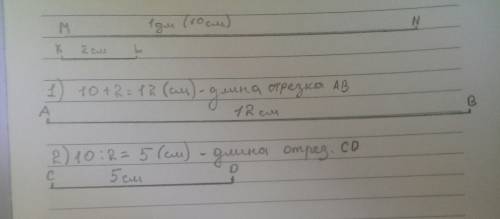 M 1дм (10см) N
K 2см L
1) 10+2=12 (см) - длина отрезка AB
A 12см B
2) 10:2= 5 (см) - длина отрез. CD
C 5см D